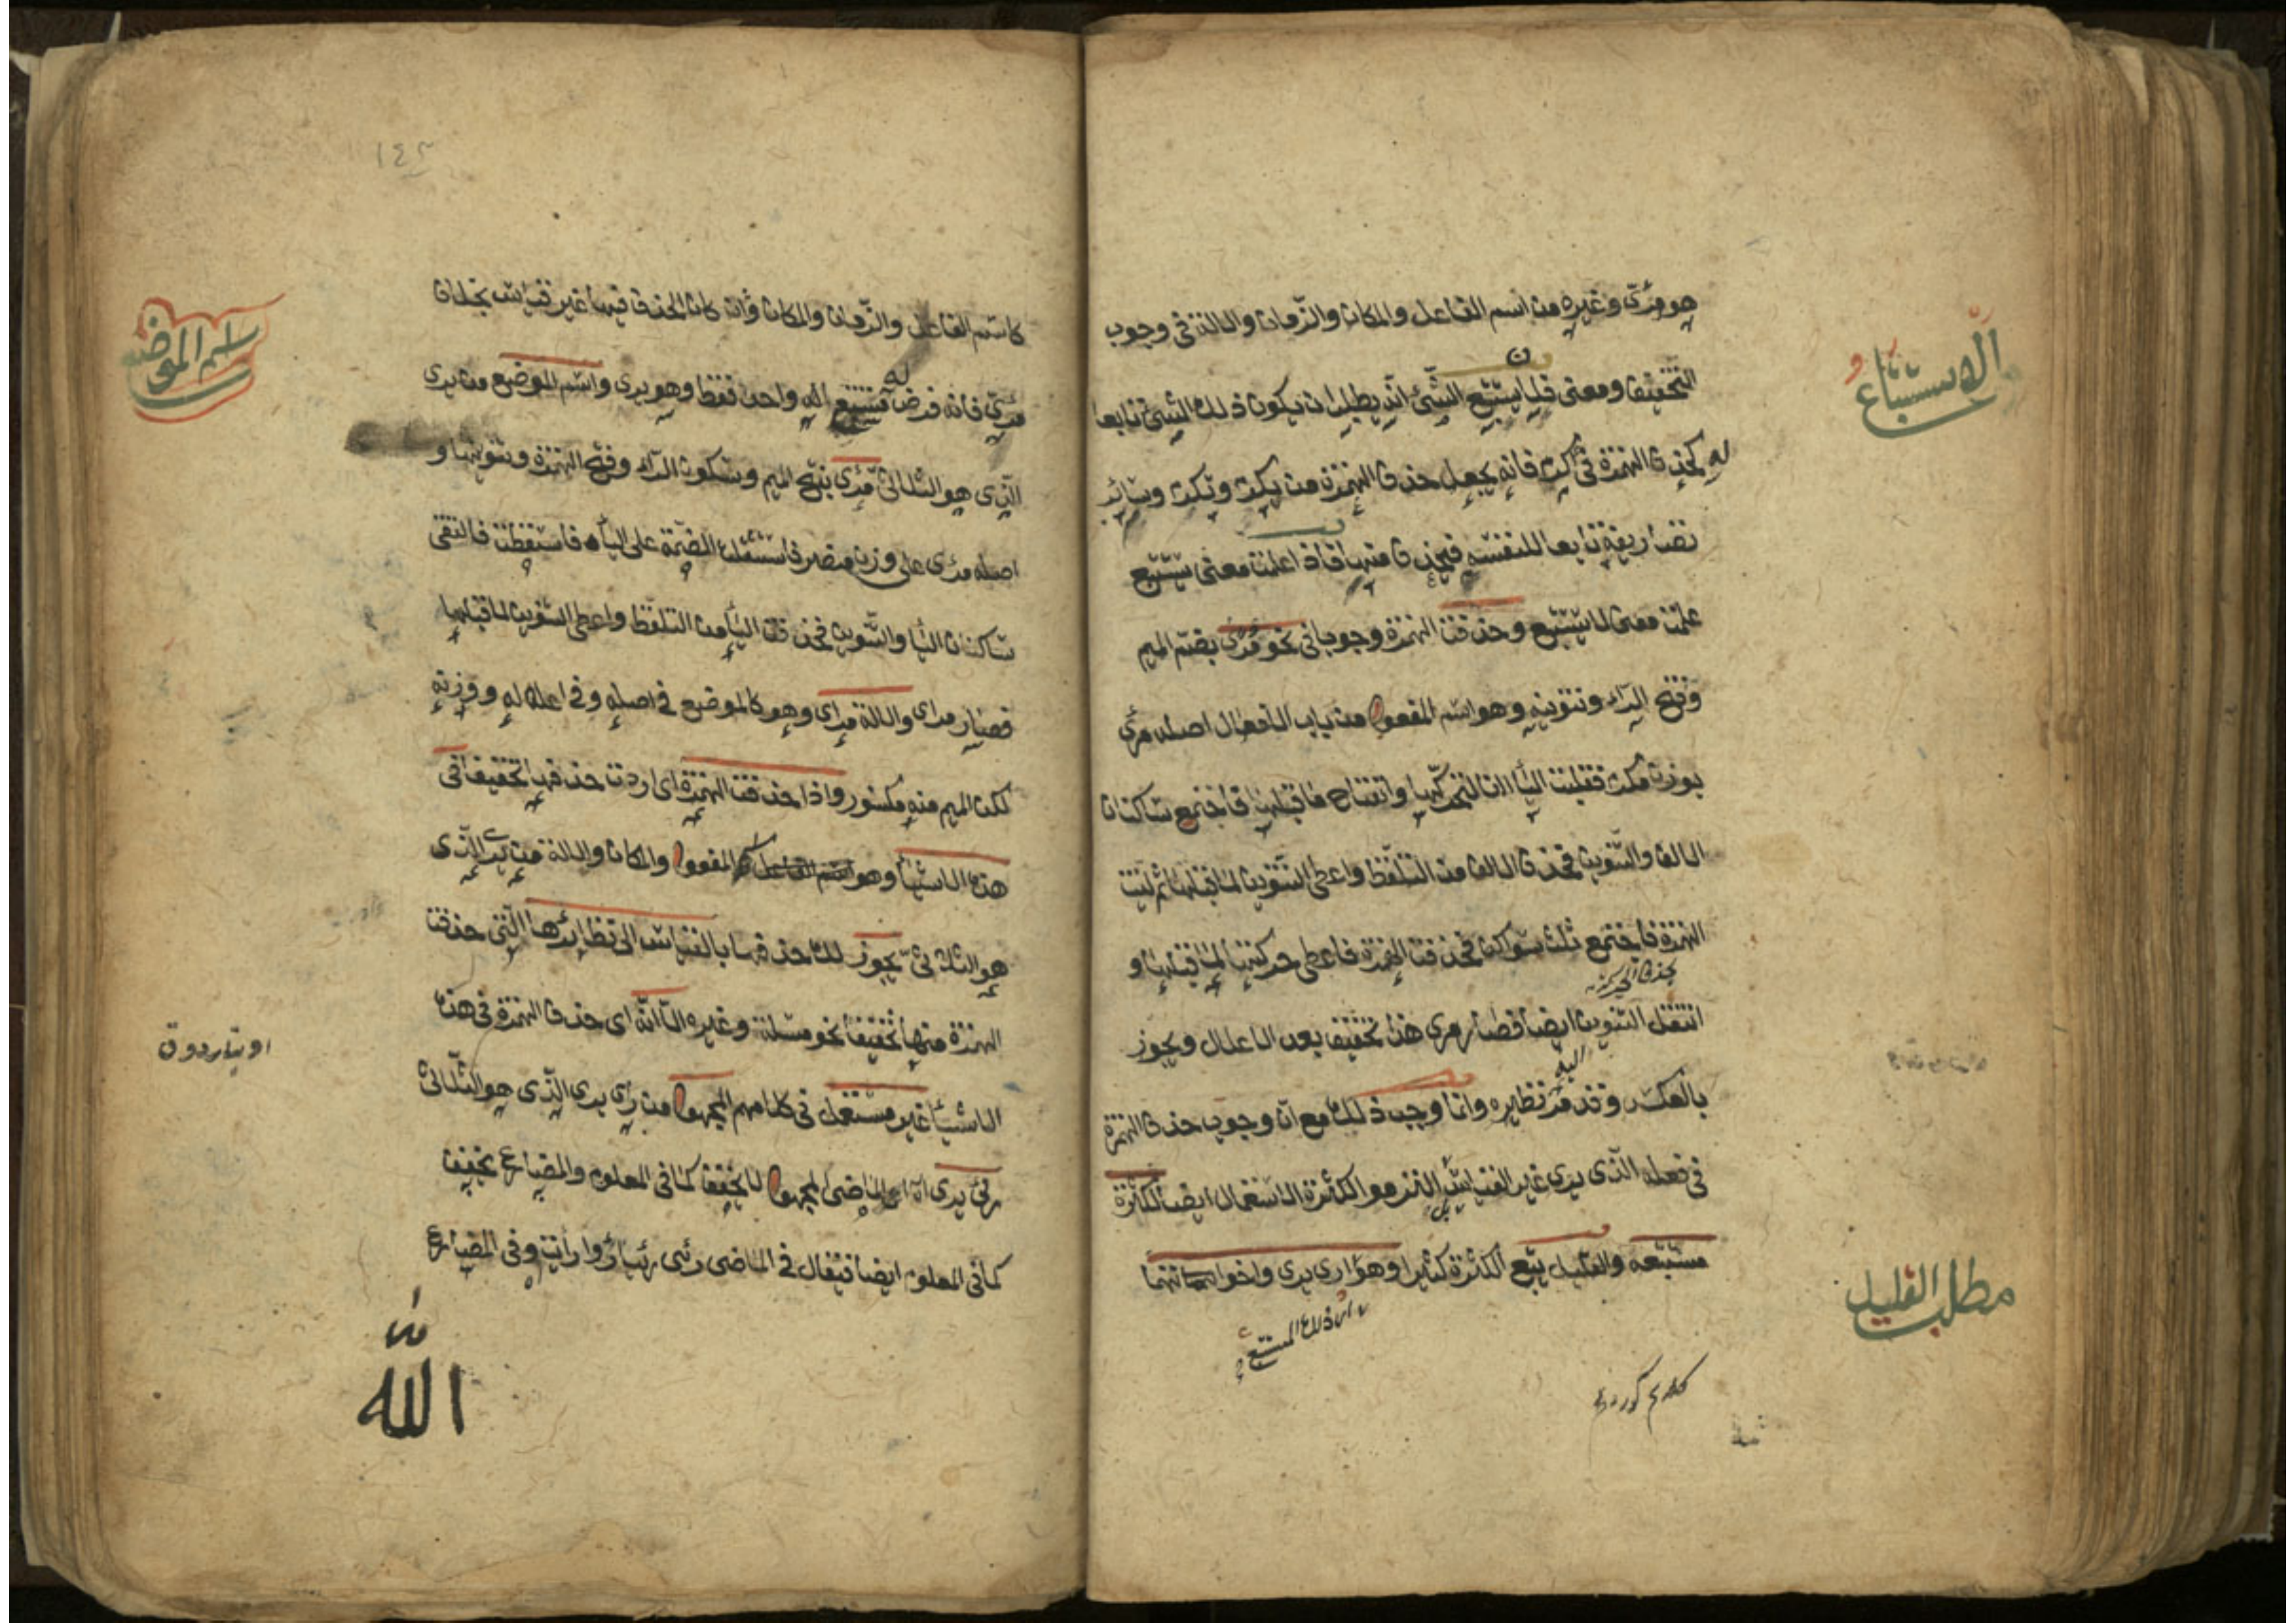 هو مرئ وغيره من اسم الفاعل والمكان والزمان والالة في وجوب
التخفيف ومعنى قلنا يستتبع الشئ انه يطلب ان يكون ذلك الشئ تابعا
له كحذف الهمزة في اكرم فانه يجعل حذف الهمزة من يكرم وتكرم وساير
تصاريفه تابعا لنفسه فيحذف منها فاذا علمت معنى يستتبع
علمت معنى لا يستتبع وحذفت الهمزة وجوبا في نحو مرى بضم الميم
وفتح الراء وتنوينه وهو اسم المفعول من باب الافعال اصله مرءي
بوزن مكرم فقلبت الياء الفا لتحركها وانفتاح ما قبلها فاجتمع ساكنان
الالف والتنوين فحذف الالف من التلفظ واعطى التنوين لما قبلها ثم لينت
الهمزة فاجتمع ثلث سواكن فحذفت الهمزة فاعطى حركتها لما قبلها و
بحذف الحركة
انتقل التنوين ايضا فصار مرى هذا تخفيف بعد الاعلال ويجوز
اليه
بالعكس وقد مر نظيره وانما وجب ذلك مع ان وجوب حذف الهمزة
في فعله الذى يرى غير القياس بل انما هو لكثرة الاستعمال ايضا لكثرة
مستتبعه والقليل يتبع الكثرة كثيرا وهو ارى يرى واخواتهما
ذلك المستتبع
الاستتباع
مطلب القليل
١٤٢
كاسم الفاعل والزمان والمكان وان كان الحذف فيها غير قياس بخلاف
له
مرئ فانه فرض مستتبع اليه واحد فقط وهو يرى واسم الموضع من يرى
الذى هو الثلاثى مرءى بفتح الميم وسكون الراء وفتح الهمزة وتنوينها و
اصله مرءى على وزن منصر فاستثقلت الضمة على الياء فاسقطت فالتقى
ساكنان الياء والتنوين فحذفت الياء من التلفظ واعطى التنوين لما قبلها
فصار مراى والالة مراى وهو كالموضع في اصله وفى اعلاله ووزنه
لكن الميم منه مكسور واذا حذفت الهمزة اى اردت حذفها تخفيفا فى
هذه الاشياء وهو المفعول والمكان والالة من يرى الذى
هو الثلاثى يجوز لك حذفها بالقياس الى نظايرها التى حذفت
الهمزة منها تخفيفا نحو مسلة وغيره الا انه اى حذف الهمزة فى هذه
الاشياء غير مستعمل فى كلامهم المجهول من رأى يرى الذى هو الثلاثى
رئى يرى الماضى المجهول لا يخفف كما فى المعلوم والمضارع يخفف
كما فى المعلوم ايضا فيقال فى الماضى رئى رئيا رؤا رأيت وفى المضارع
الله
اسم الموضع